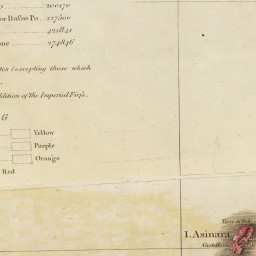 o ......... 200170
or Basso Po... 227500
421841
ne ...... 274846
tes (excepting those which
ddition of the Imperial Fiefs.
G
Yellow
Purple
Orange
Red
I. Asinara